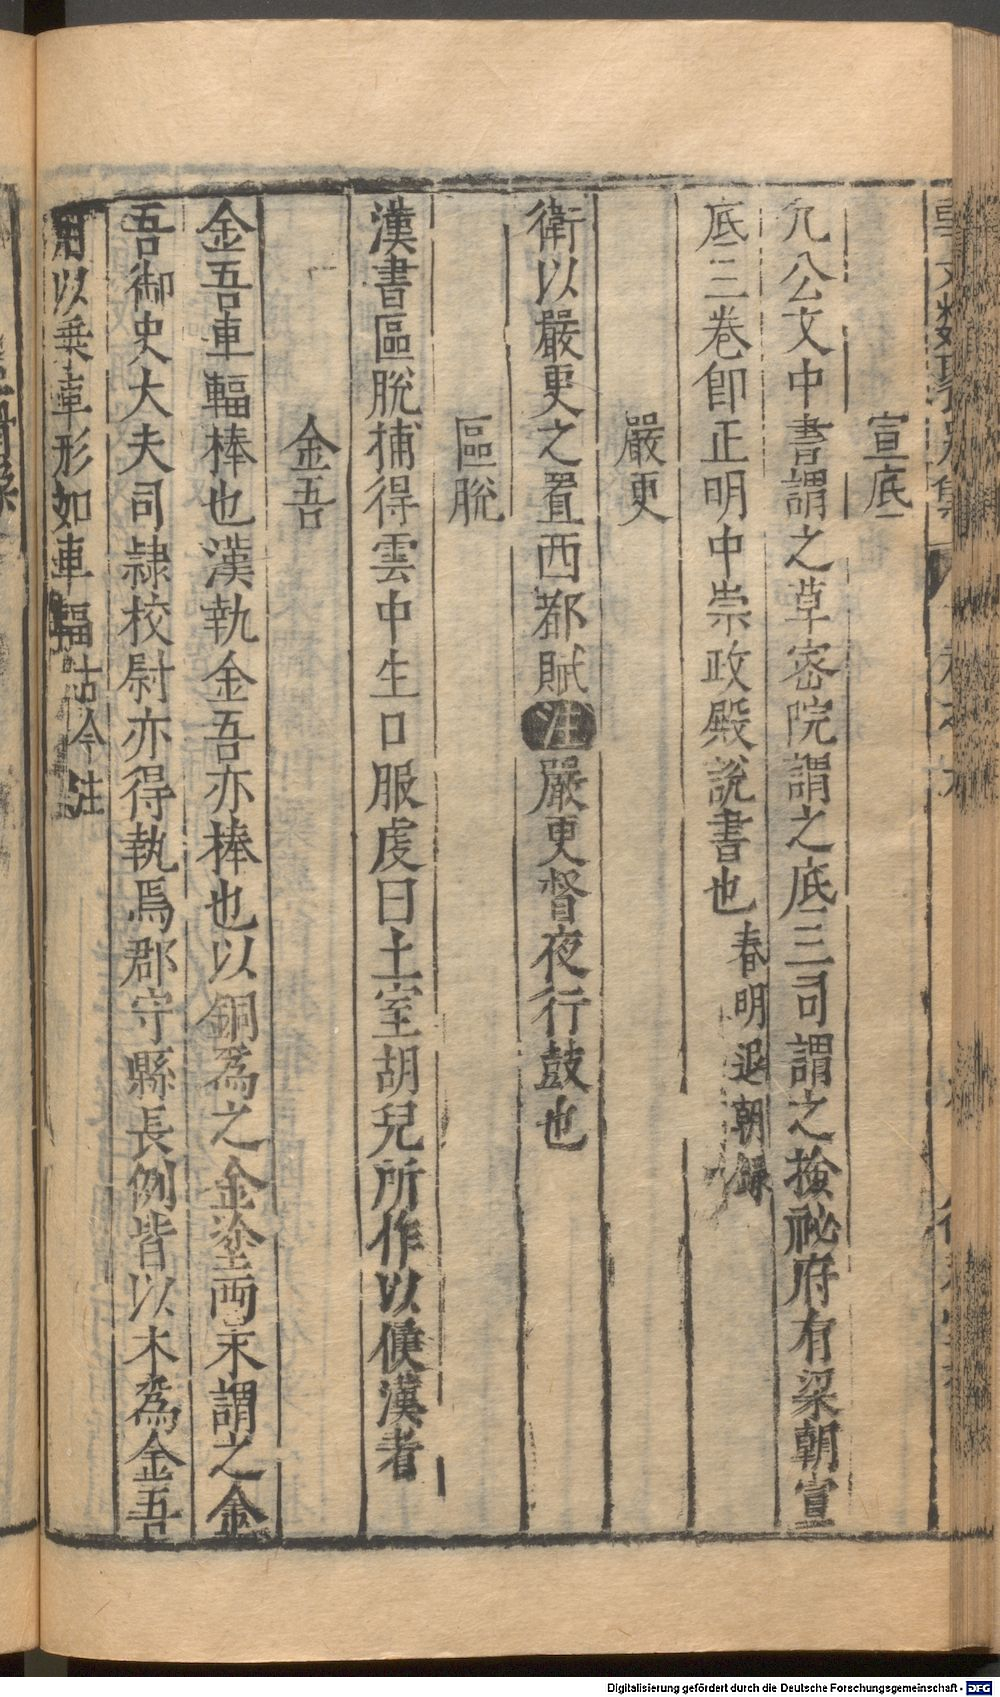 宣底
凡公文中書謂之草宻院謂之底三司謂之撿祕府有梁朝宣
底二卷即正明中崇政殿說書也春明退朝録
嚴更
衛以嚴更之置西都賦注嚴更督夜行鼓也
區脫
漢書區脫捕得雲中生口服虔曰土室胡兒所作以候漢者
金吾
金吾車輻棒也漢執金吾亦棒也以銅爲之金塗兩末謂之金
吾御史大夫司隷校尉亦得執焉郡守縣長例皆以木爲金吾
用以乗車形如車輻古今注
Digitalisierung gefördert durch die Deutsche Forschungsgemeinschaft - DFG